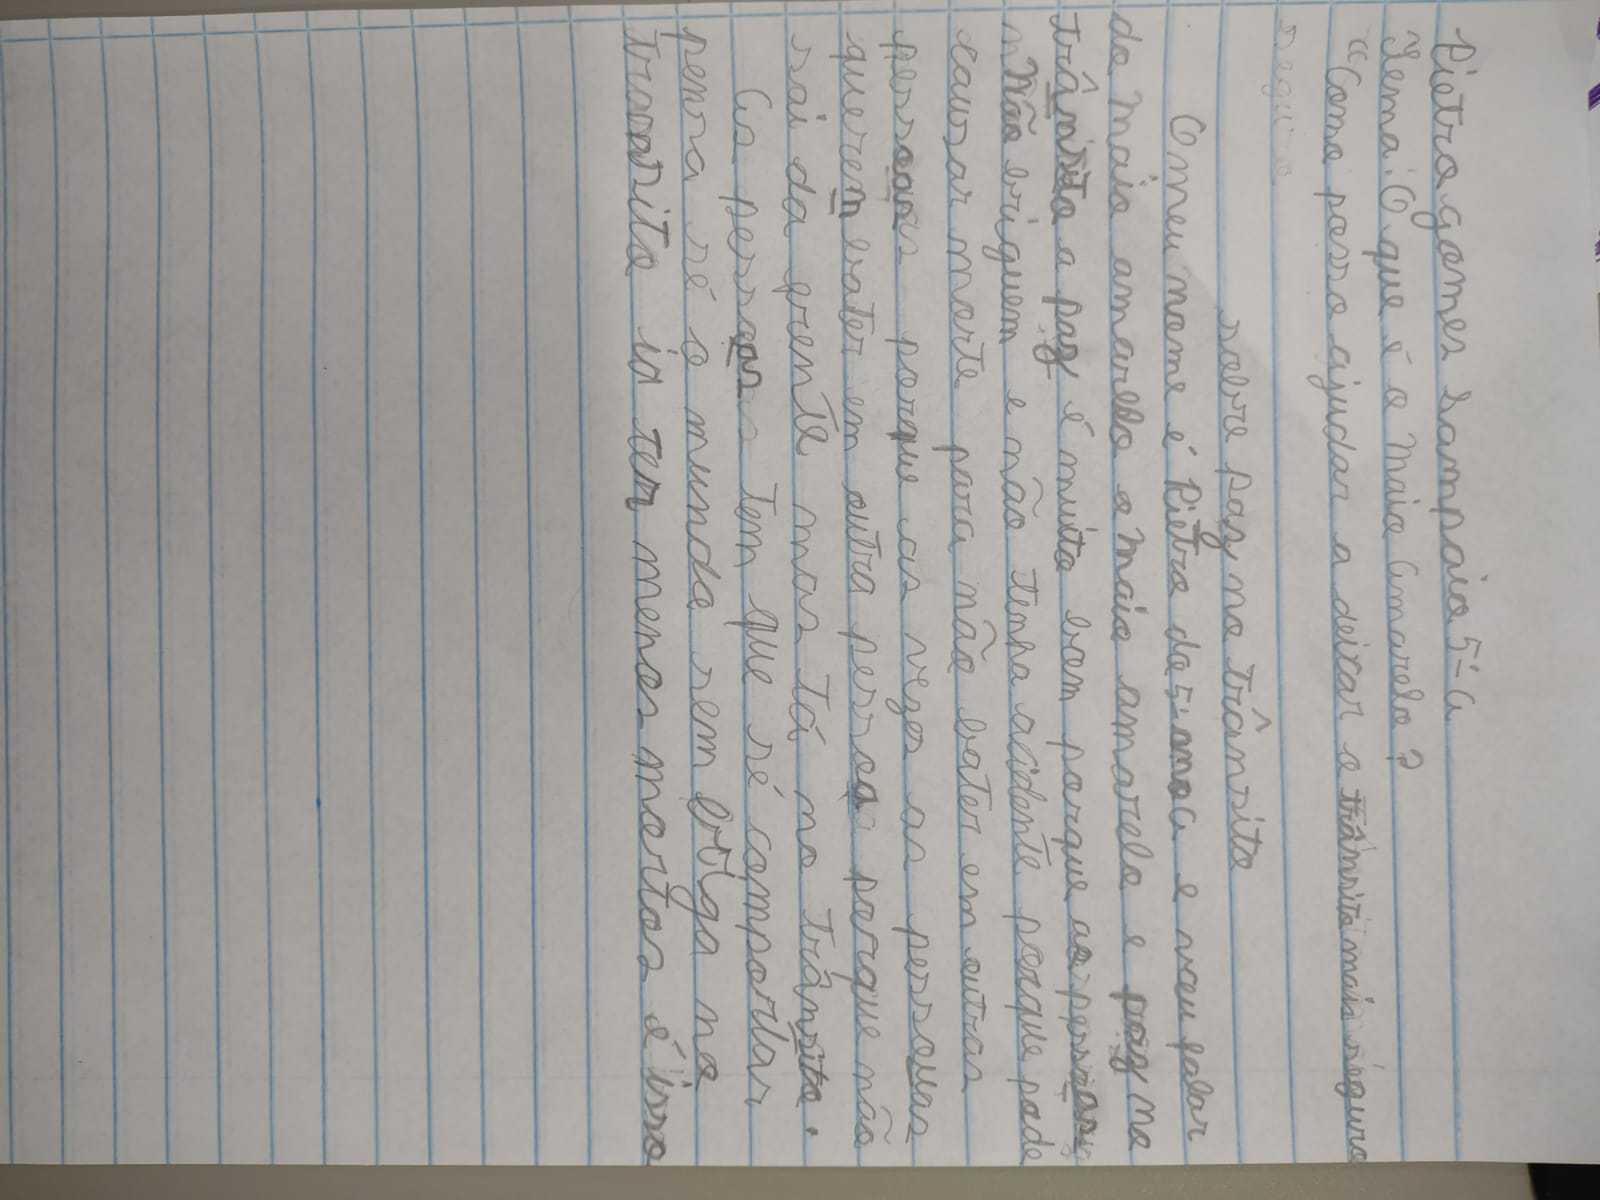 Pietro gomes Sampaio 5º a
Tema: O que é o Maio Amarelo?
"Como posso ajudar a deixar o trânsito mais siguro
seguro
sobre paz no trânsito
O meu nome é Pietro do 5º ano a e vou falar
do Maio amarelo o maio amarelo e paz no
trânsito a paz é muito bom porque as pessoas
Não briguem e não tenha acidente porque pode
causar morte para não bater em outras
pessoas porque as vezes as pessoas
querem bater em outra pessoa porque não
sai da frente mas tá no trânsito.
As pessoas tem que sé comportar
pensa sé o mundo sem briga no
transito ia ter menos mortos é isso